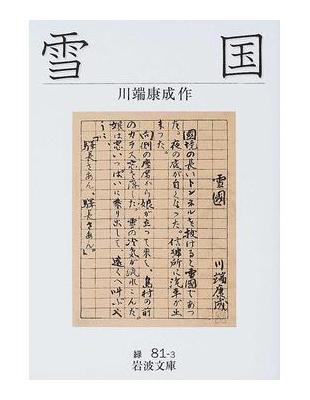 雪国
川端康成作
雪國
川端康成
國境の長いトンネルを抜けると雪國であつ
た。夜の底が白くなつた。信號所に汽車が止
まつた。
向側の座席から娘が立つて來て、島村の前
のガラス窓を落した。雪の冷気が流れこんだ。
娘は窓いつぱいに乗り出して、遠くへ叫ぶや
うに、
「驛長さあん、驛長さあん。」
緑 81-3
岩波文庫